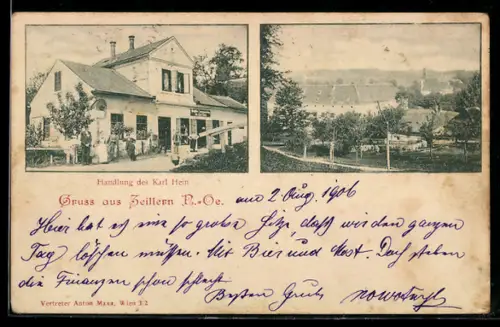 Handlung des Karl Hein
Gruss aus Zeillern N.-Oe. am 2 Aug. 1906
Hier hat es eine so große Hitze, daß wir den ganzen
Tag löschen müssen. Mit Bier und Most. Doch stehen
die Finanzen schon schlecht.
Besten Gruß
Vertreter Anton Mann, Wien I/2